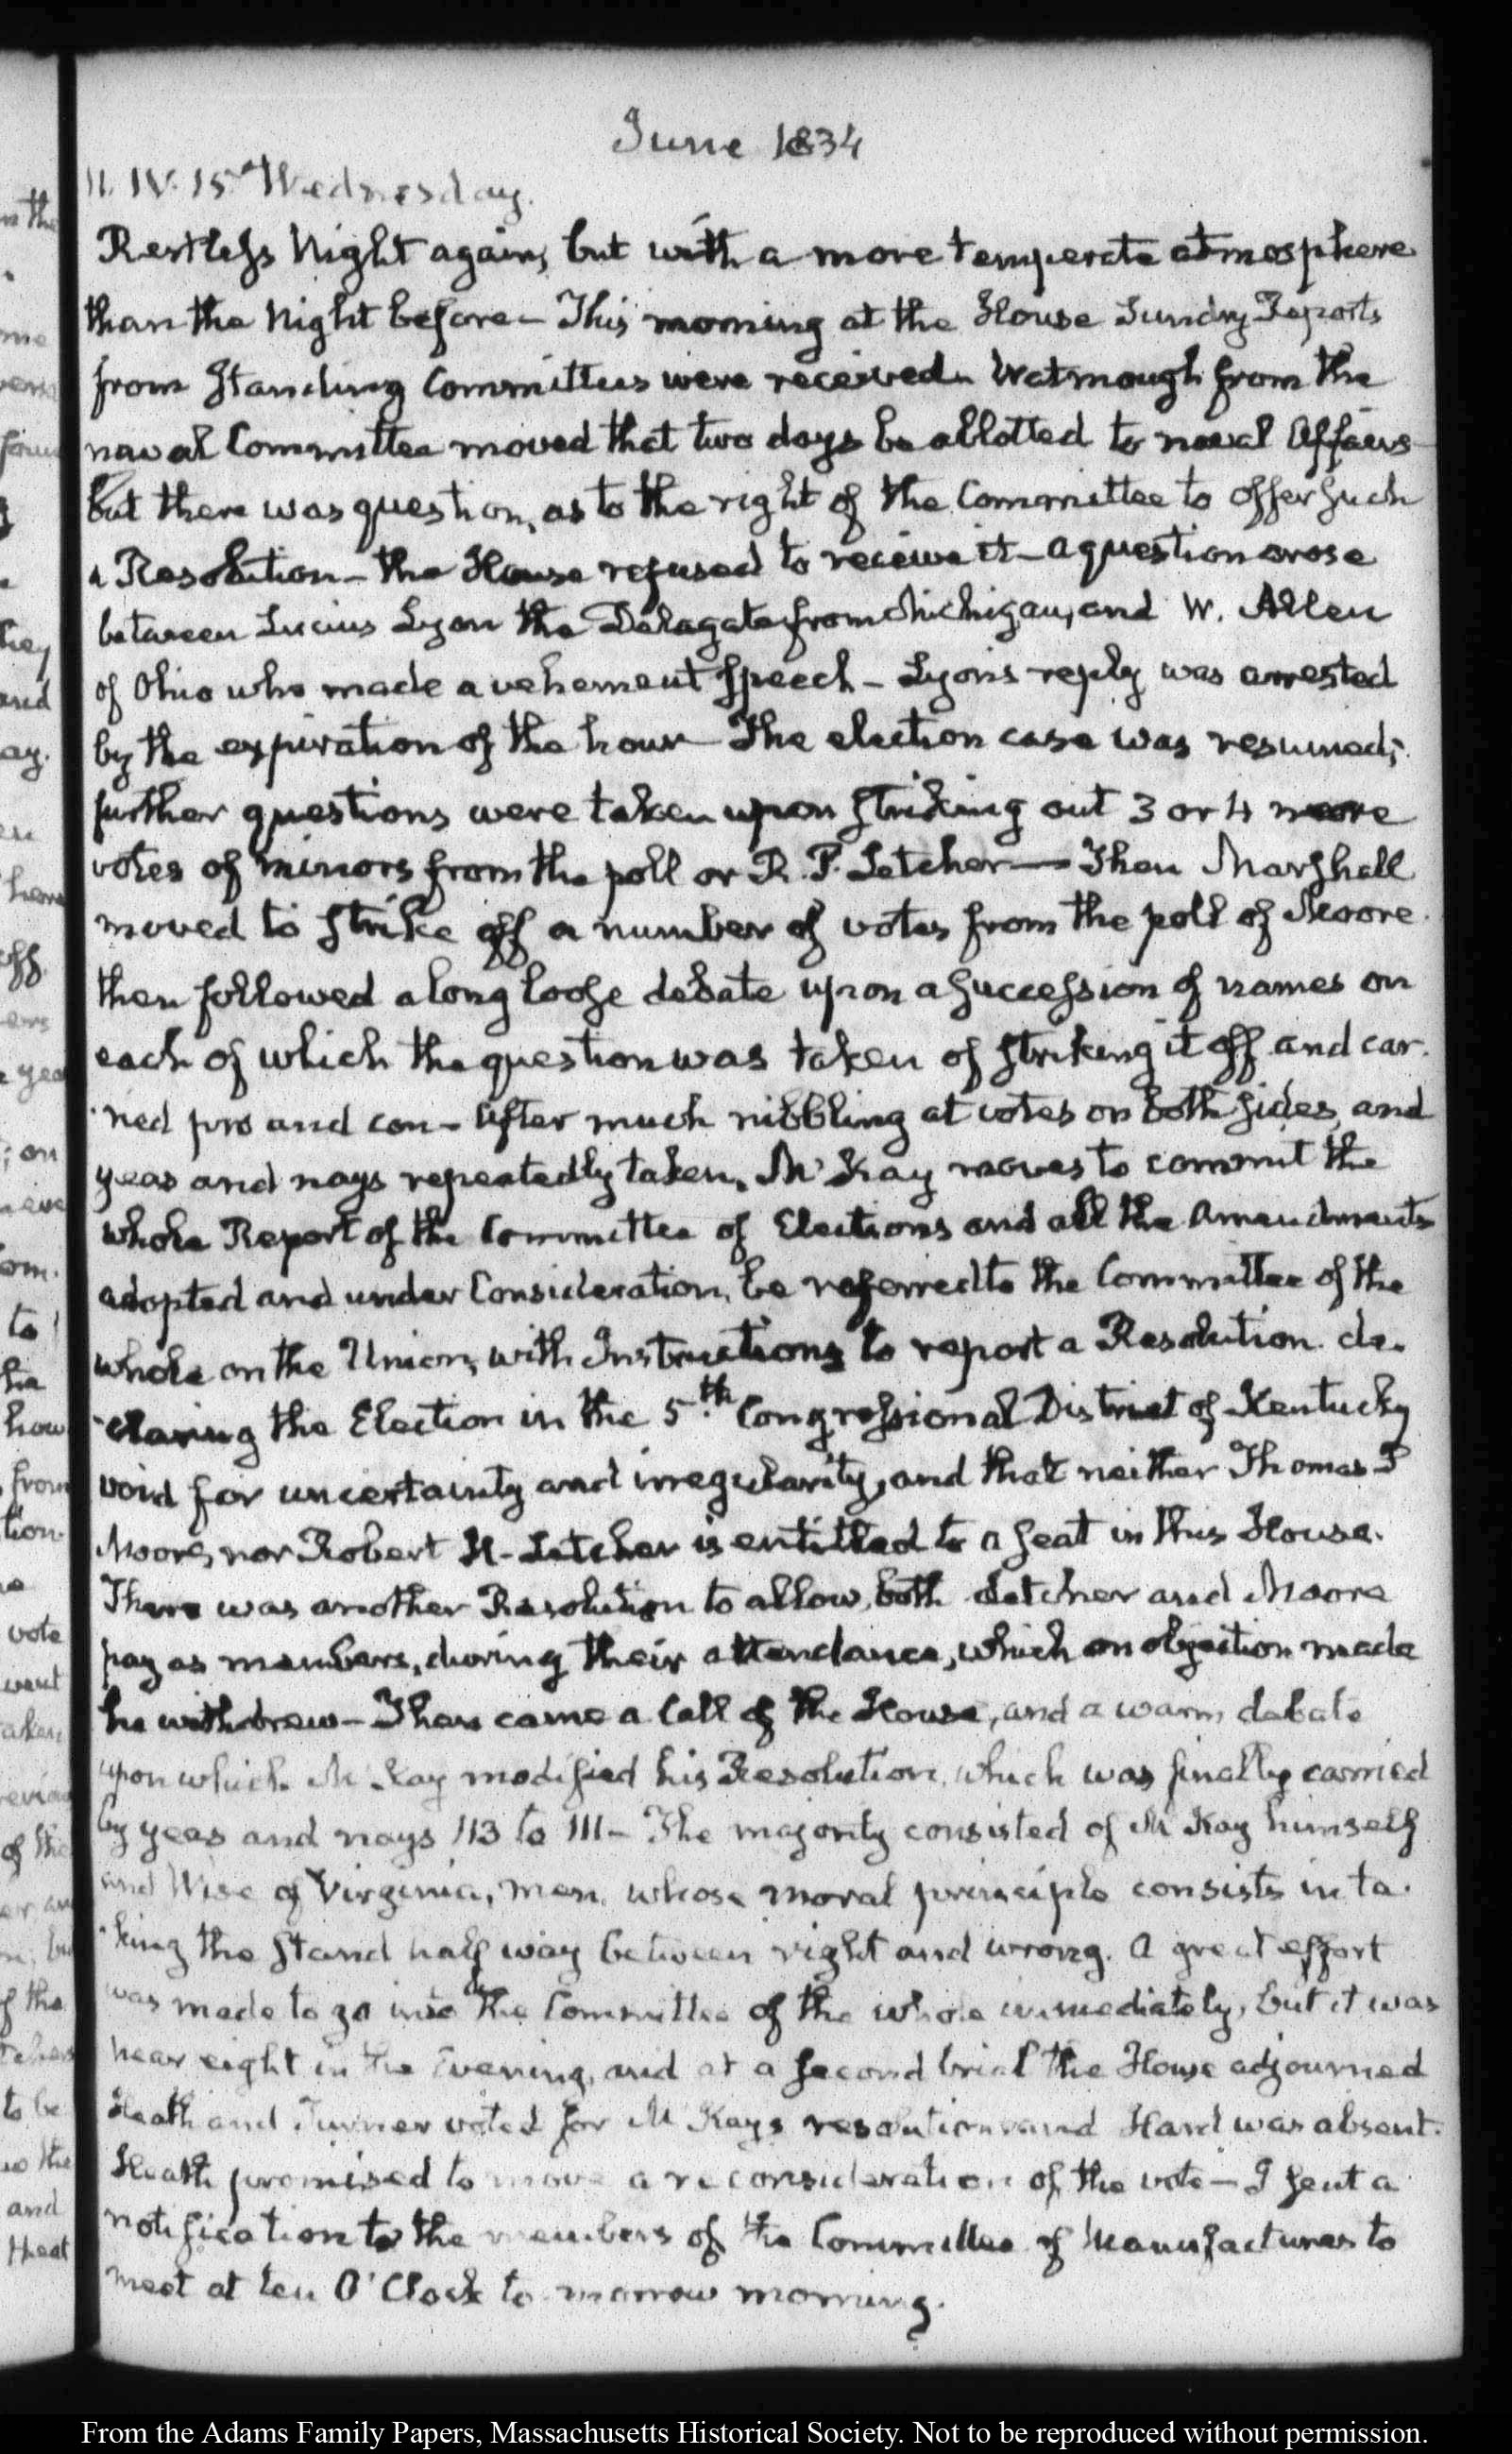 June 1834
11. IV. 15. Wednesday.
Restless Night again, but with a more temperate atmosphere
than the Night before – This morning at the House Sundry Reports
from Standing Committees were received. Watmough from the
naval Committee moved that two days be allotted to naval Affairs
but there was question, as to the right of the Committee to offer such
a Resolution – the House refused to receive it – a question arose
between Lucius Lyon the Delegate from Michigan, and W. Allen
of Ohio who made a vehement speech – Lyon's reply was arrested
by the expiration of the hour – The election case was resumed;
further questions were taken upon striking out 3 or 4 more
votes of minors from the poll or R. P. Letcher — Then Marshall
moved to strike off a number of votes from the poll of Moore.
then followed a long loose debate upon a succession of names on
each of which the question was taken of striking it off and car-
-ried pro and con – After much nibbling at votes on both sides, and
yeas and nays repeatedly taken, McKay moves to commit the
whole Report of the Committee of Elections and all the Amendments
adopted and under Consideration, be referred to the Committee of the
whole on the Union, with Instructions to report a Resolution de-
-claring the Election in the 5.th Congressional District of Kentucky
void for uncertainty and irregularity, and that neither Thomas P
Moore, nor Robert H. Letcher is entitled to a seat in this House.
There was another Resolution to allow, both Letcher and Moore
pay as members, during their attendance, which on objection made
he withdrew – Then came a Call of the House, and a warm debate
upon which McKay modified his Resolution, which was finally carried
by yeas and nays 113 to 111 – The majority consisted of McKay himself
and Wise of Virginia, men, whose moral principle consists in ta-
-king the stand half way between right and wrong. A great effort
was made to go into the Committee of the whole immediately, but it was
near eight in the Evening, and at a second trial the House adjourned
Heath and Turner voted for McKays resolution and Hard was absent.
Heath promised to move a reconsideration of the vote – I sent a
notification to the members of the Committee of Manufactures to
meet at ten O'Clock to-morrow morning.
From the Adams Family Papers, Massachusetts Historical Society. Not to be reproduced without permission.